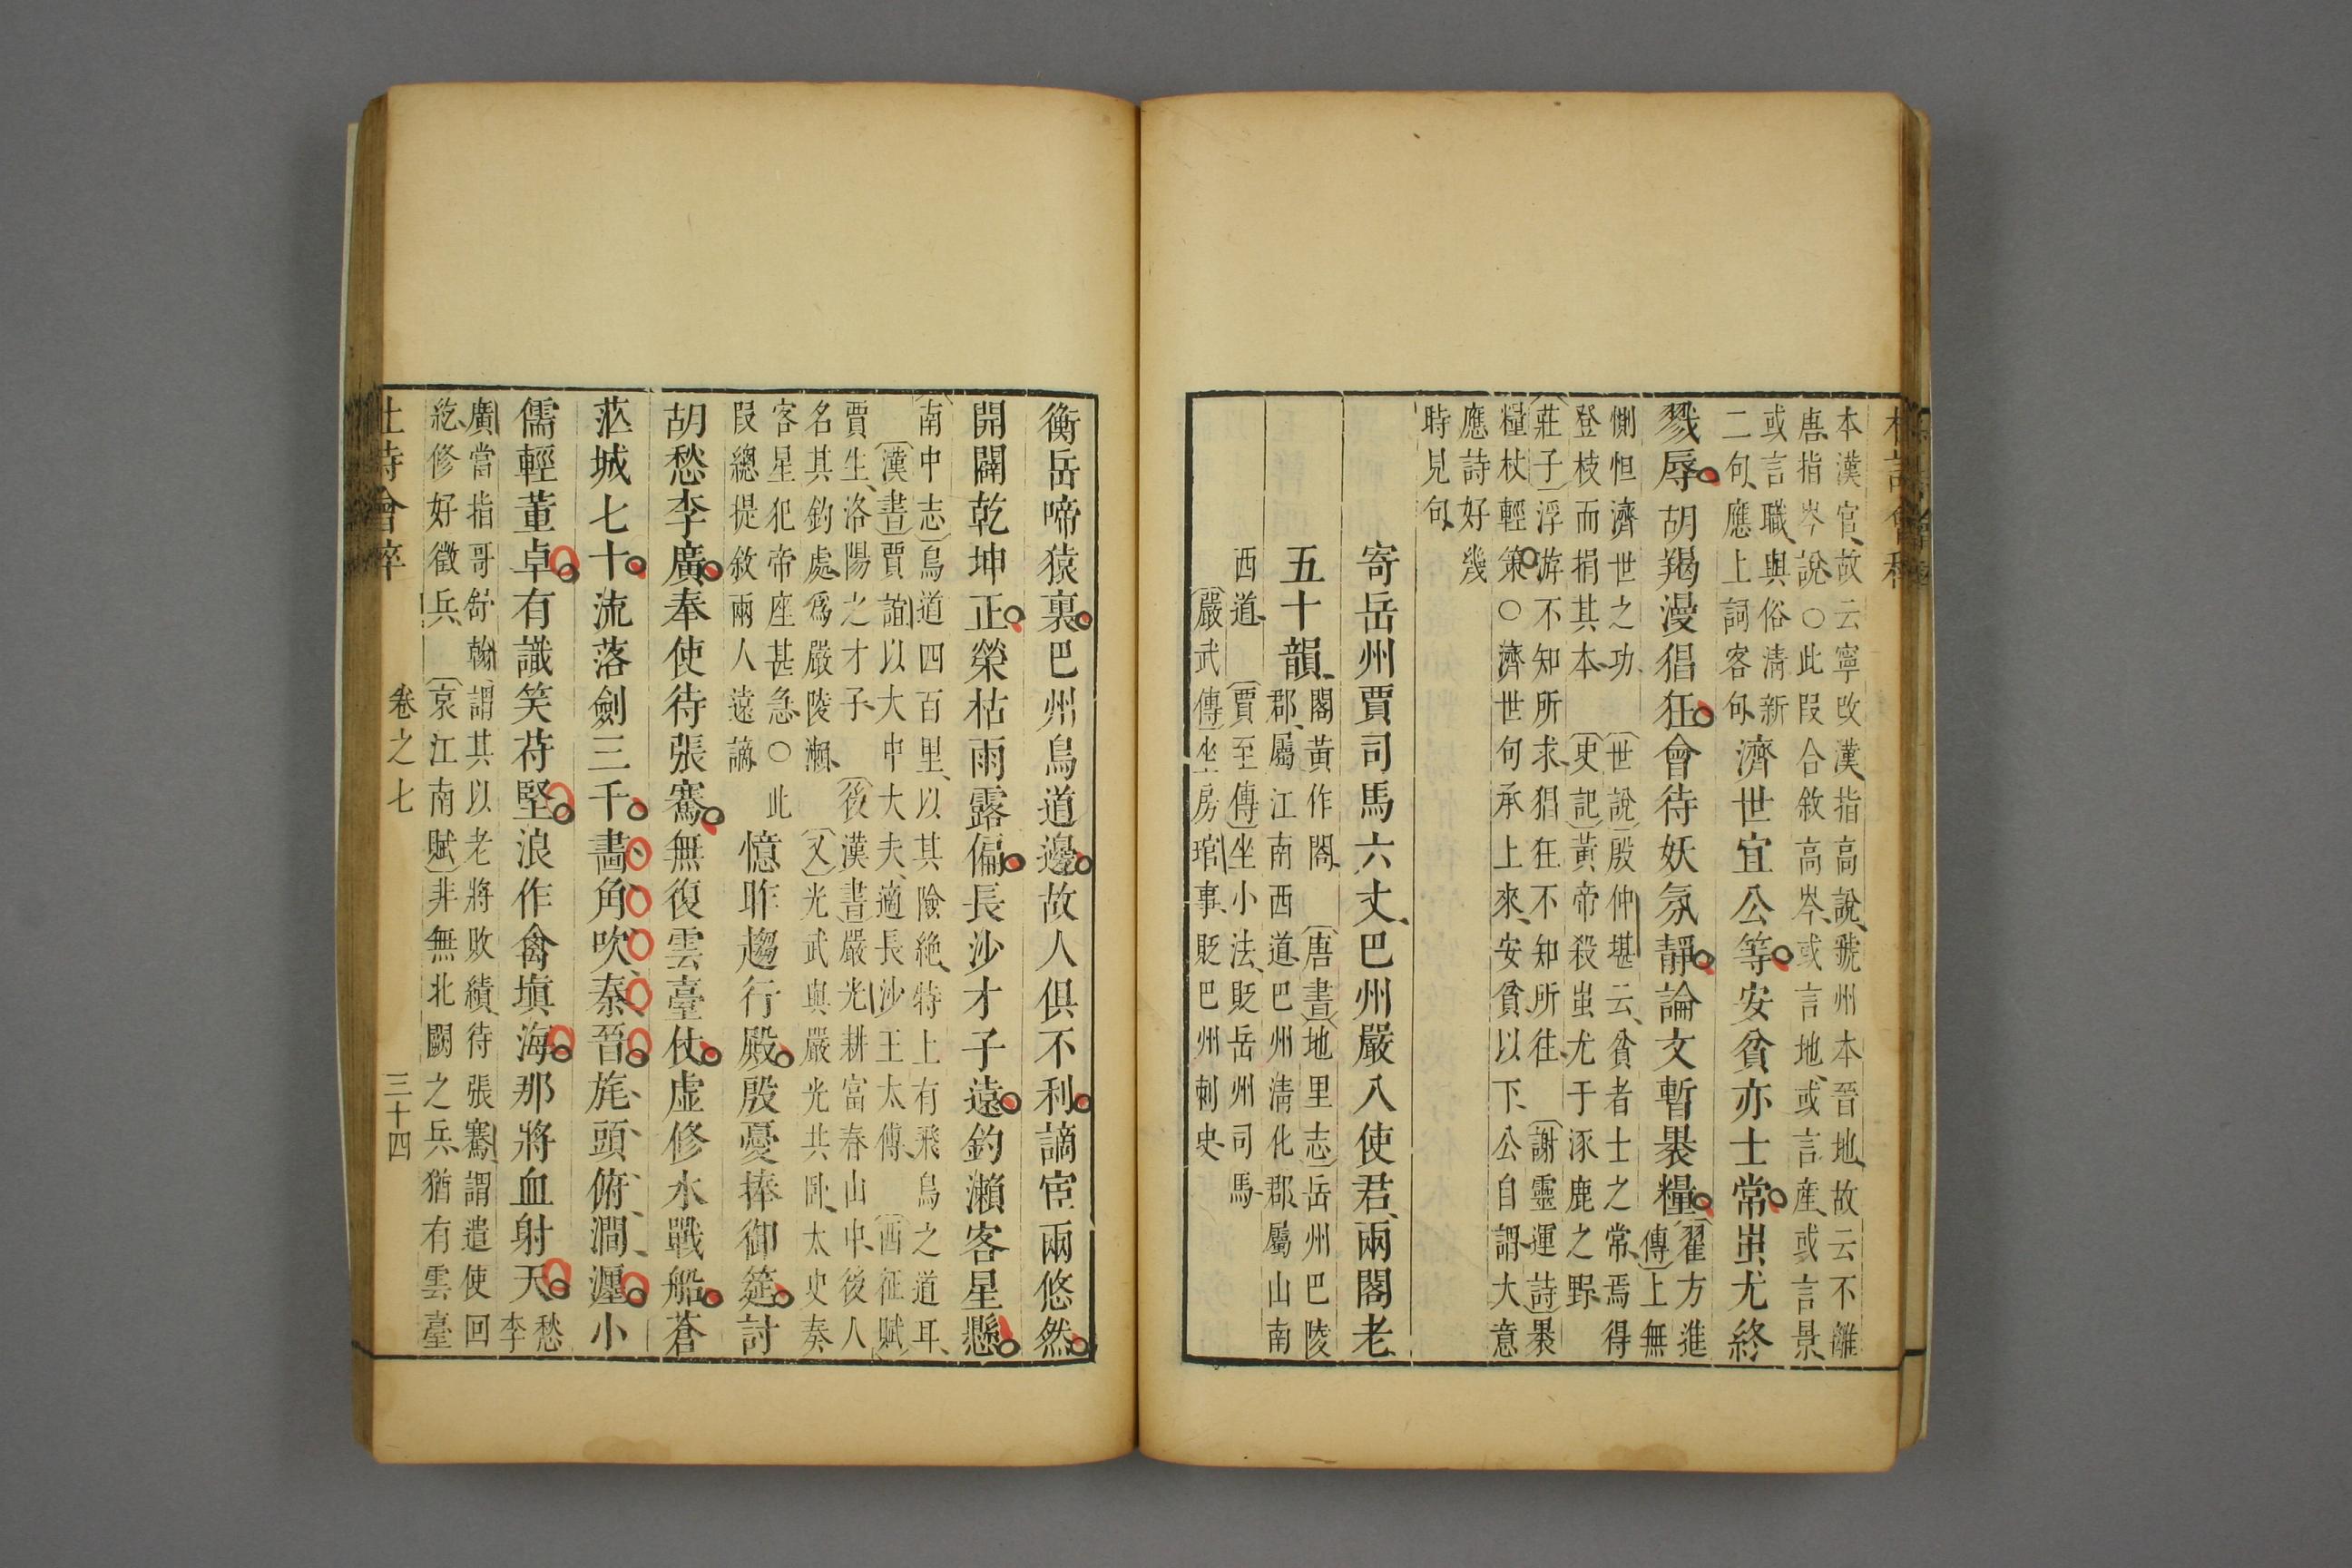 本漢官故云寧改漢指高說虢州本晉地故云不離
唐指岑說○此叚合敘高岑或言地或言産或言景
或言職與俗淸新
二句應上詞客句
濟世宜公等安貧亦士常蚩尤終
戮辱胡羯漫猖狂會待妖氛靜論文暫褁糧
翟方進
傳上無
惻怛濟世之功
世說殷仲堪云貧者士之常焉得
登枝而捐其本
史記黃帝殺蚩尤于涿鹿之野
莊子浮游不知所求猖狂不知所往
謝靈運詩褁
糧杖輕策○濟世句承上來安貧以下公自謂大意
應詩好幾
時見句
寄岳州賈司馬六丈巴州嚴八使君兩閣老
五十韻
閣黃作閤
唐書地里志岳州巴陵
郡屬江南西道巴州淸化郡屬山南
西道
賈至傳坐小法貶岳州司馬
嚴武傳坐房琯事貶巴州刺史
衡岳啼猿裏巴州鳥道邊故人俱不利謫宦兩悠然
開闢乾坤正榮枯雨露偏長沙才子遠釣瀨客星懸
南中志鳥道四百里以其險絶特上有飛鳥之道耳
漢書賈誼以大中大夫適長沙王太傅
西征賦
賈生洛陽之才子
後漢書嚴光耕富春山中後人
名其釣處爲嚴陵瀨
又光武與嚴光共臥太史奏
客星犯帝座甚急○此
叚總提敘兩人遠謫
憶昨趨行殿殷憂捧御筵討
胡愁李廣奉使待張騫無復雲臺仗虛修水戰船蒼
茫城七十流落劍三千畵角吹秦晉旄頭俯澗瀍小
儒輕董卓有識笑苻堅浪作禽塡海那將血射天
愁
李
廣當指哥舒翰謂其以老將敗績待張騫謂遣使回
紇修好徵兵
哀江南賦非無北闕之兵猶有雲臺
杜詩會稡
卷之七
三十四